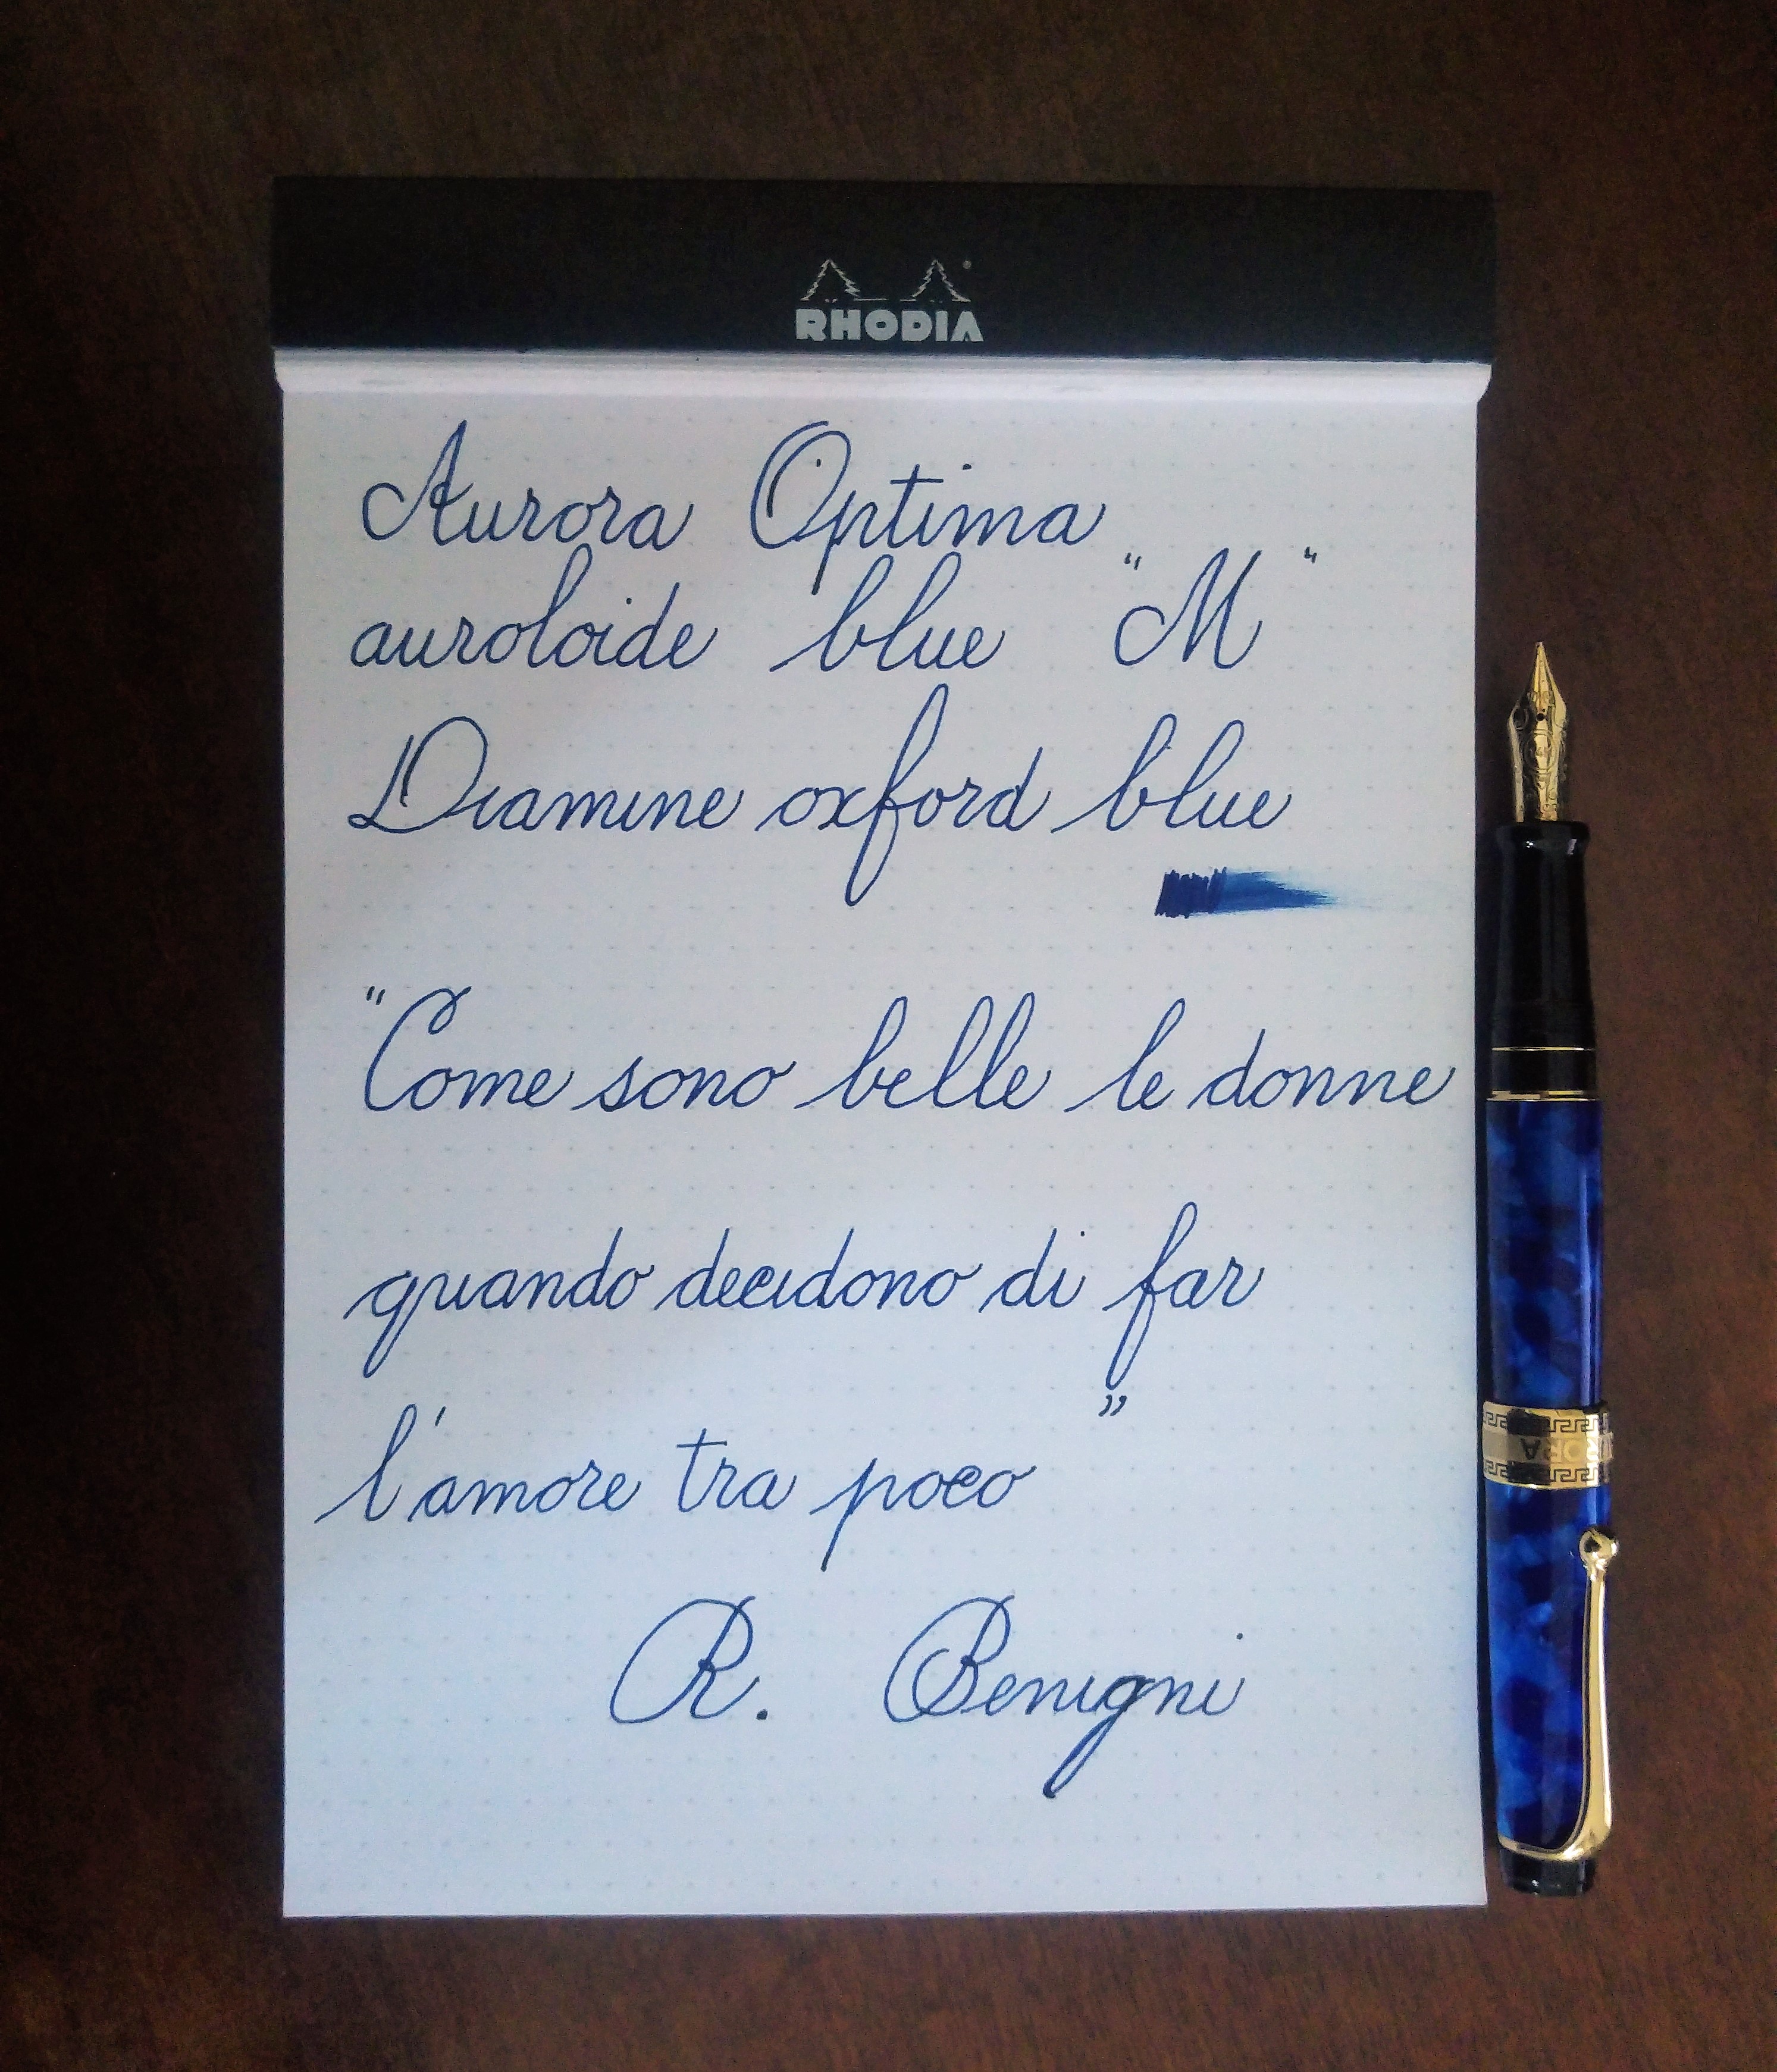 RHODIA
Aurora Optima
auroloide blue "M"
Diamine oxford blue
"Come sono belle le donne
quando decidono di far
l'amore tra poco"
R. Benigni
AURORA